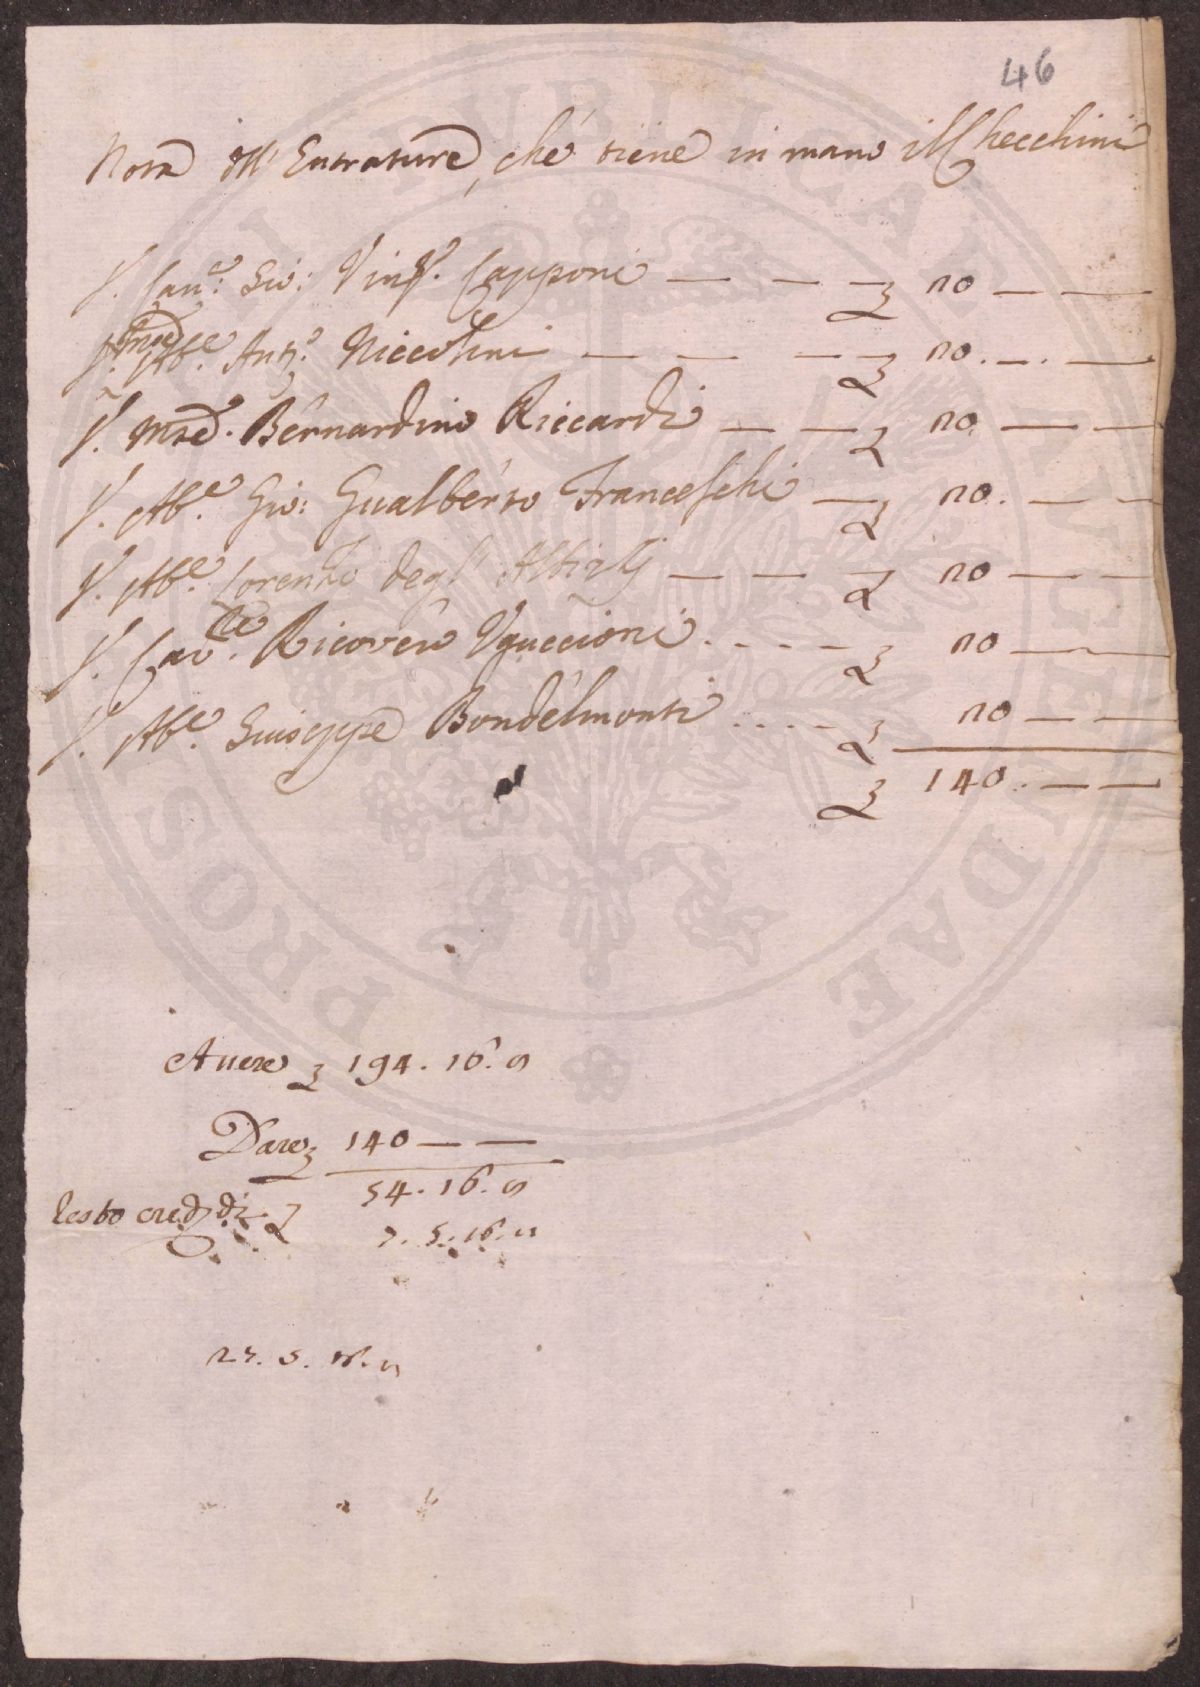 46
Nota dell' Entrature, che tiene in mano il Checchini
S. Cau.e Gio: Vinc.o Capponi — — £ 20 — —
S. Ab.e Ant.o Niccolini — — — £ 20. —. —
S. Mse. Bernardino Riccardi — — £ 20 — —
S. Ab.e Gio: Gualberto Franceschi — £ 20. — —
S. Ab.e Lorenzo degl' Albizzj — — £ 20 — —
S. Cau.re Ricovero Uguccioni . - - - - £ 20 — —
S. Ab.e Giuseppe Bondelmonti . . . . - £ 20 — —
£ 140. — —
Auere £ 194. 16. 8
Dare £ 140 — —
54. 16. 8
Resto cred di £
7. 5. 16. 11
27. 5. 16. 11
PUBLICAE LUCENDAE